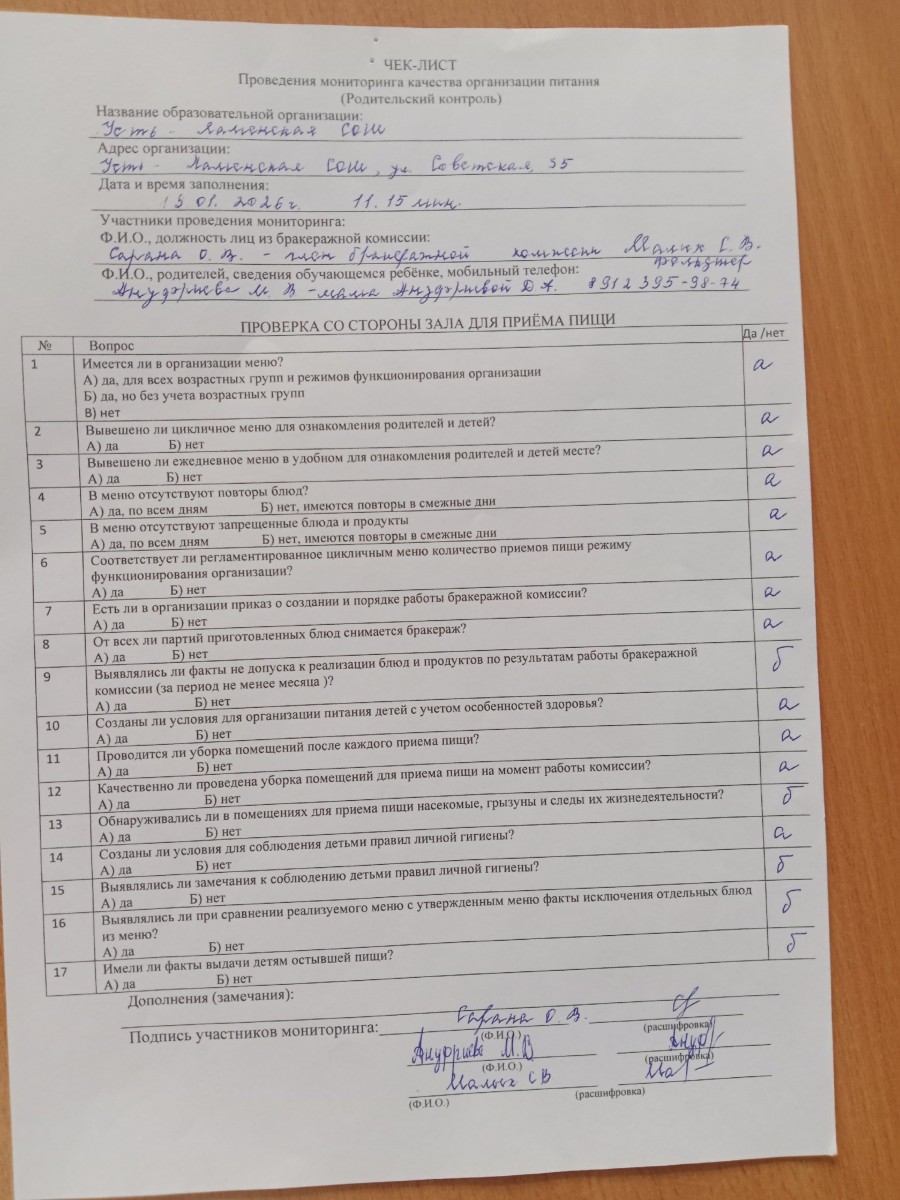 ЧЕК-ЛИСТ
Проведения мониторинга качества организации питания
(Родительский контроль)
Название образовательной организации:
Усть - Ламенская СОШ
Адрес организации:
Усть - Ламенская СОШ, ул. Советская, 35
Дата и время заполнения:
01. 2026 г. 11. 15 мин.
Участники проведения мониторинга:
Ф.И.О., должность лиц из бракеражной комиссии:
Сарана О. В. - член бракеражной комиссии Малых С. В.
фельдшер
Ф.И.О., родителей, сведения обучающемся ребёнке, мобильный телефон:
Ануфриева М. В - мама Ануфриевой Д. А. 8912 395-98-74
ПРОВЕРКА СО СТОРОНЫ ЗАЛА ДЛЯ ПРИЁМА ПИЩИ
№ Вопрос Да /нет
1 Имеется ли в организации меню? а
А) да, для всех возрастных групп и режимов функционирования организации
Б) да, но без учета возрастных групп
В) нет
2 Вывешено ли цикличное меню для ознакомления родителей и детей? а
А) да Б) нет
3 Вывешено ли ежедневное меню в удобном для ознакомления родителей и детей месте? а
А) да Б) нет
4 В меню отсутствуют повторы блюд? а
А) да, по всем дням Б) нет, имеются повторы в смежные дни
5 В меню отсутствуют запрещенные блюда и продукты а
А) да, по всем дням Б) нет, имеются повторы в смежные дни
6 Соответствует ли регламентированное цикличным меню количество приемов пищи режиму а
функционирования организации?
А) да Б) нет
7 Есть ли в организации приказ о создании и порядке работы бракеражной комиссии? а
А) да Б) нет
8 От всех ли партий приготовленных блюд снимается бракераж? а
А) да Б) нет
9 Выявлялись ли факты не допуска к реализации блюд и продуктов по результатам работы бракеражной б
комиссии (за период не менее месяца )?
А) да Б) нет
10 Созданы ли условия для организации питания детей с учетом особенностей здоровья? а
А) да Б) нет
11 Проводится ли уборка помещений после каждого приема пищи? а
А) да Б) нет
12 Качественно ли проведена уборка помещений для приема пищи на момент работы комиссии? а
А) да Б) нет
13 Обнаруживались ли в помещениях для приема пищи насекомые, грызуны и следы их жизнедеятельности? б
А) да Б) нет
14 Созданы ли условия для соблюдения детьми правил личной гигиены? а
А) да Б) нет
15 Выявлялись ли замечания к соблюдению детьми правил личной гигиены? б
А) да Б) нет
16 Выявлялись ли при сравнении реализуемого меню с утвержденным меню факты исключения отдельных блюд б
из меню?
А) да Б) нет
17 Имели ли факты выдачи детям остывшей пищи? б
А) да Б) нет
Дополнения (замечания):
Подпись участников мониторинга: Сарана О. В.
(Ф.И.О.) (расшифровка)
Ануфриева М.В Ануф
(Ф.И.О.) (расшифровка)
Малых СВ Мал
(Ф.И.О.) (расшифровка)